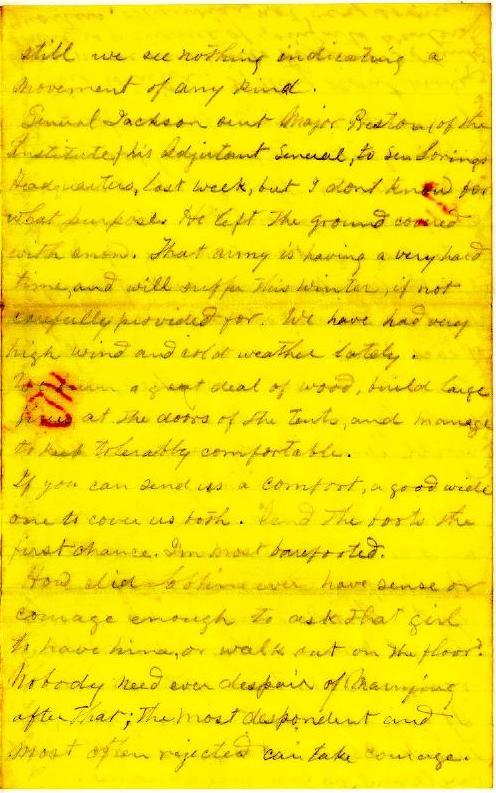 still we see nothing indicating a
movement of any kind.
General Jackson sent Major Preston (of the
Institute) his Adjutant General, to Gen Lorings
Head quarters, last week, but I dont know for
what purpose. He left the ground covered
with snow. That army is having a very hard
time, and will suffer this winter, if not
carefully provided for. We have had very
high wind and cold weather lately.
We burn a great deal of wood, build large
fires at the doors of the tents, and manage
to keep tolerably comfortable.
If you can send us a comfort, a good wide
one to cover us both. Send the boots the
first chance. Im most barefooted.
How did ever have sense or
courage enough to ask that girl
to have him, or walk out on the floor?
Nobody need ever despair of Marrying
after that; the most despondent and
most often rejected can take courage.